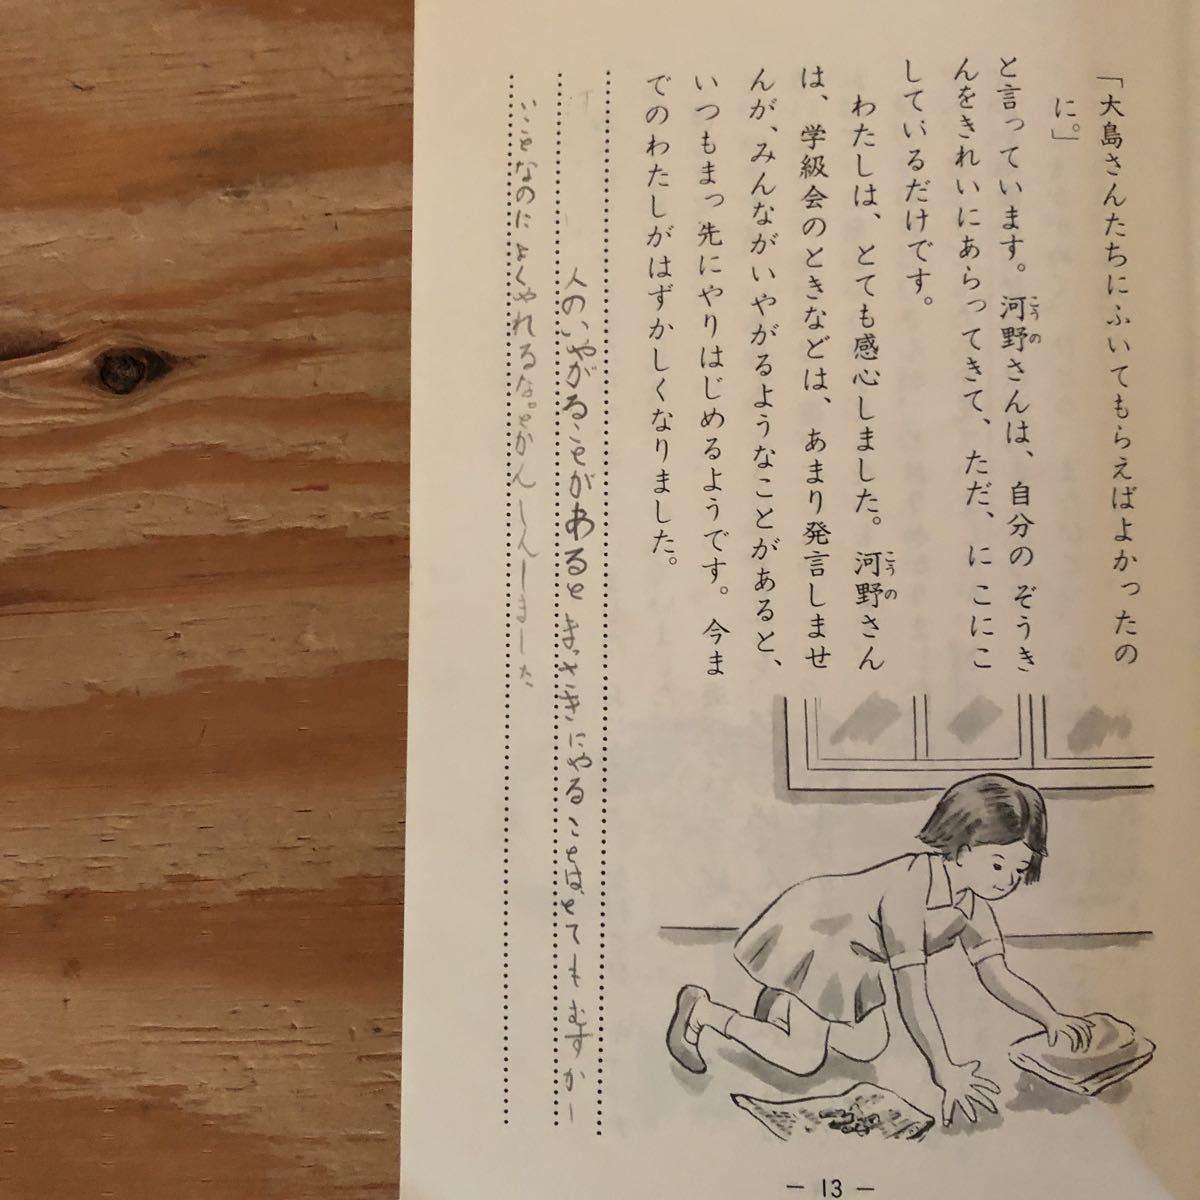 「大島さんたちにふいてもらえばよかったの
に。」
と言っています。河野さんは、自分の ぞうき
こうの
んをきれいにあらってきて、ただ、に こにこ
しているだけです。
わたしは、とても感心しました。河野さん
こうの
は、学級会のときなどは、あまり発言しませ
んが、みんながいやがるようなことがあると、
いつもまっ先にやりはじめるようです。今ま
でのわたしがはずかしくなりました。
人のいやがることがあるとまっさきにやることはとてもむずかし
いことなのによくやれるな。とかんしんしました
— 13 —